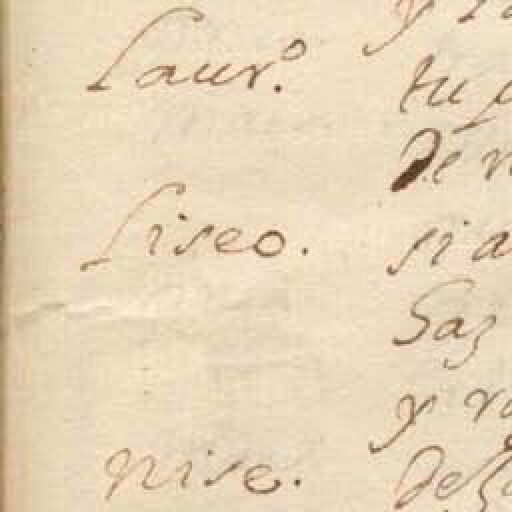 Laur.º
tu
De
Liseo.
si a
Saz
y
Nise.